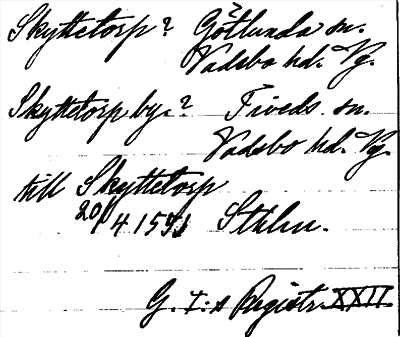 Skyttetorp? Götlunda sn.
Vadsbo hd. Vg.
Skyttetorp by.? Tiveds sn.
Vadsbo hd. Vg.
till Skyttetorp
20/4 1591 Sthlm.
G. I:s Registr. XXII.